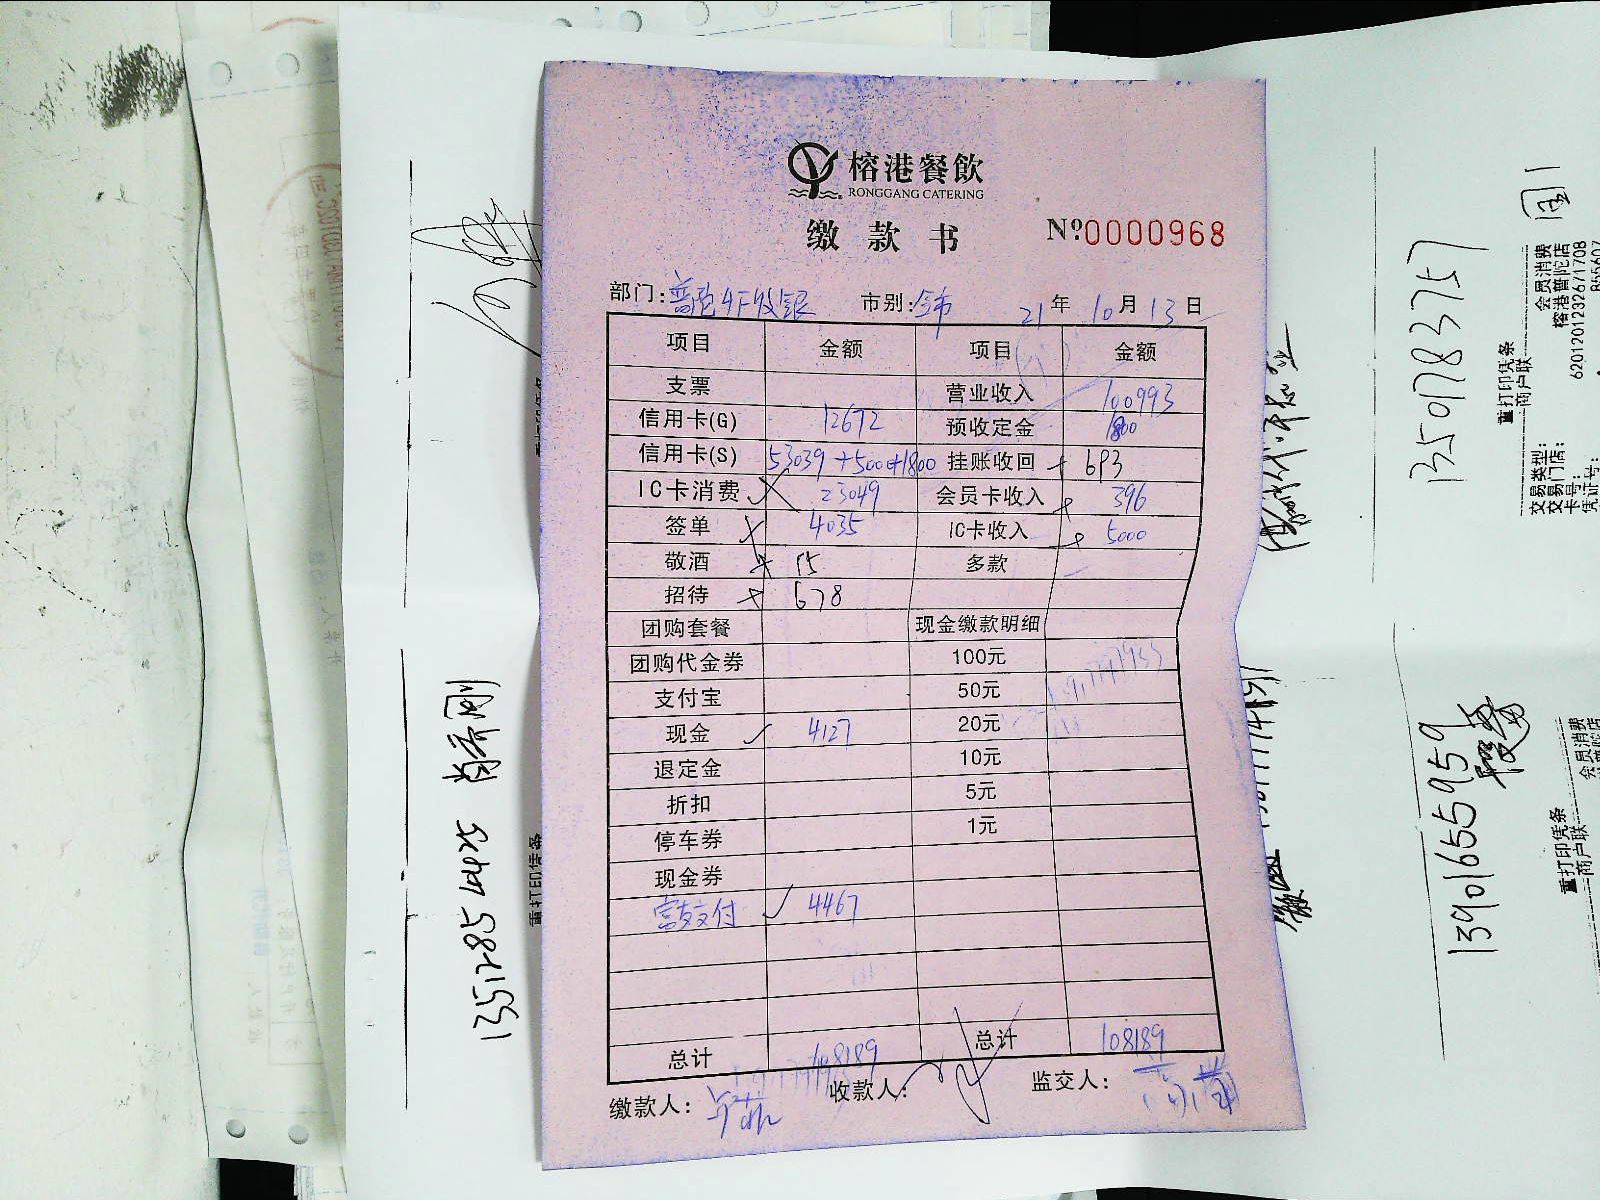 榕港餐飲
RONGGANG CATERING
缴款书 №0000968
部门:普陀4F收银 市别:全市 21年10月13日
项目 金额 项目 金额
支票 营业收入 100993
信用卡(G) 12672 预收定金 1800
信用卡(S) 53039+5000+1800 挂账收回 693
IC卡消费 23049 会员卡收入 396
签单 4035 IC卡收入 5000
敬酒 15 多款
招待 678
团购套餐 现金缴款明细
团购代金券 100元
支付宝 50元
现金 4127 20元
退定金 10元
折扣 5元
停车券 1元
现金券
富友支付 4467
总计 108189 总计 108189
缴款人: 收款人: 监交人:
13512854425 肖齐刚
重打印凭条
13501783757
国1
重打印凭条
商户联
交易类型: 会员消费
交易门店: 榕港普陀店
卡号: 6201201232671708
凭证号:
13901655959
重打印凭条
商户联
会员消费